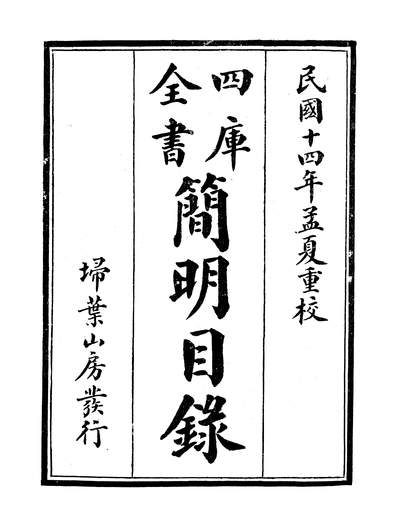 民國十四年孟夏重校
四庫全書簡明目錄
掃葉山房發行